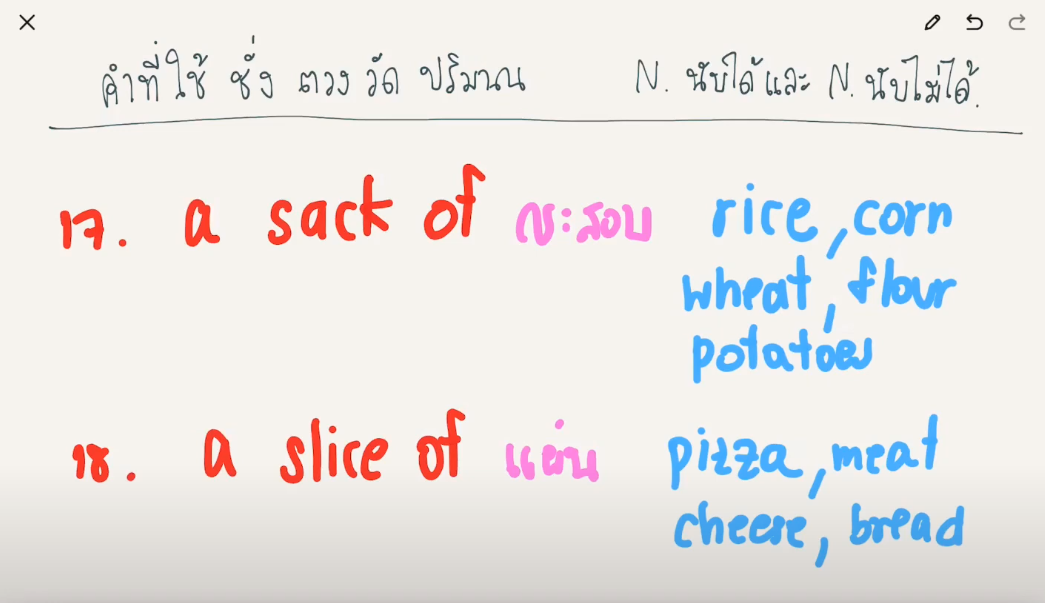 คำที่ใช้ ชั่ง ตวง วัด ปริมาณ N. นับได้ และ N. นับไม่ได้.
17. a sack of กระสอบ rice, corn
wheat, flour
potatoes
18. a slice of แผ่น pizza, meat
cheese, bread